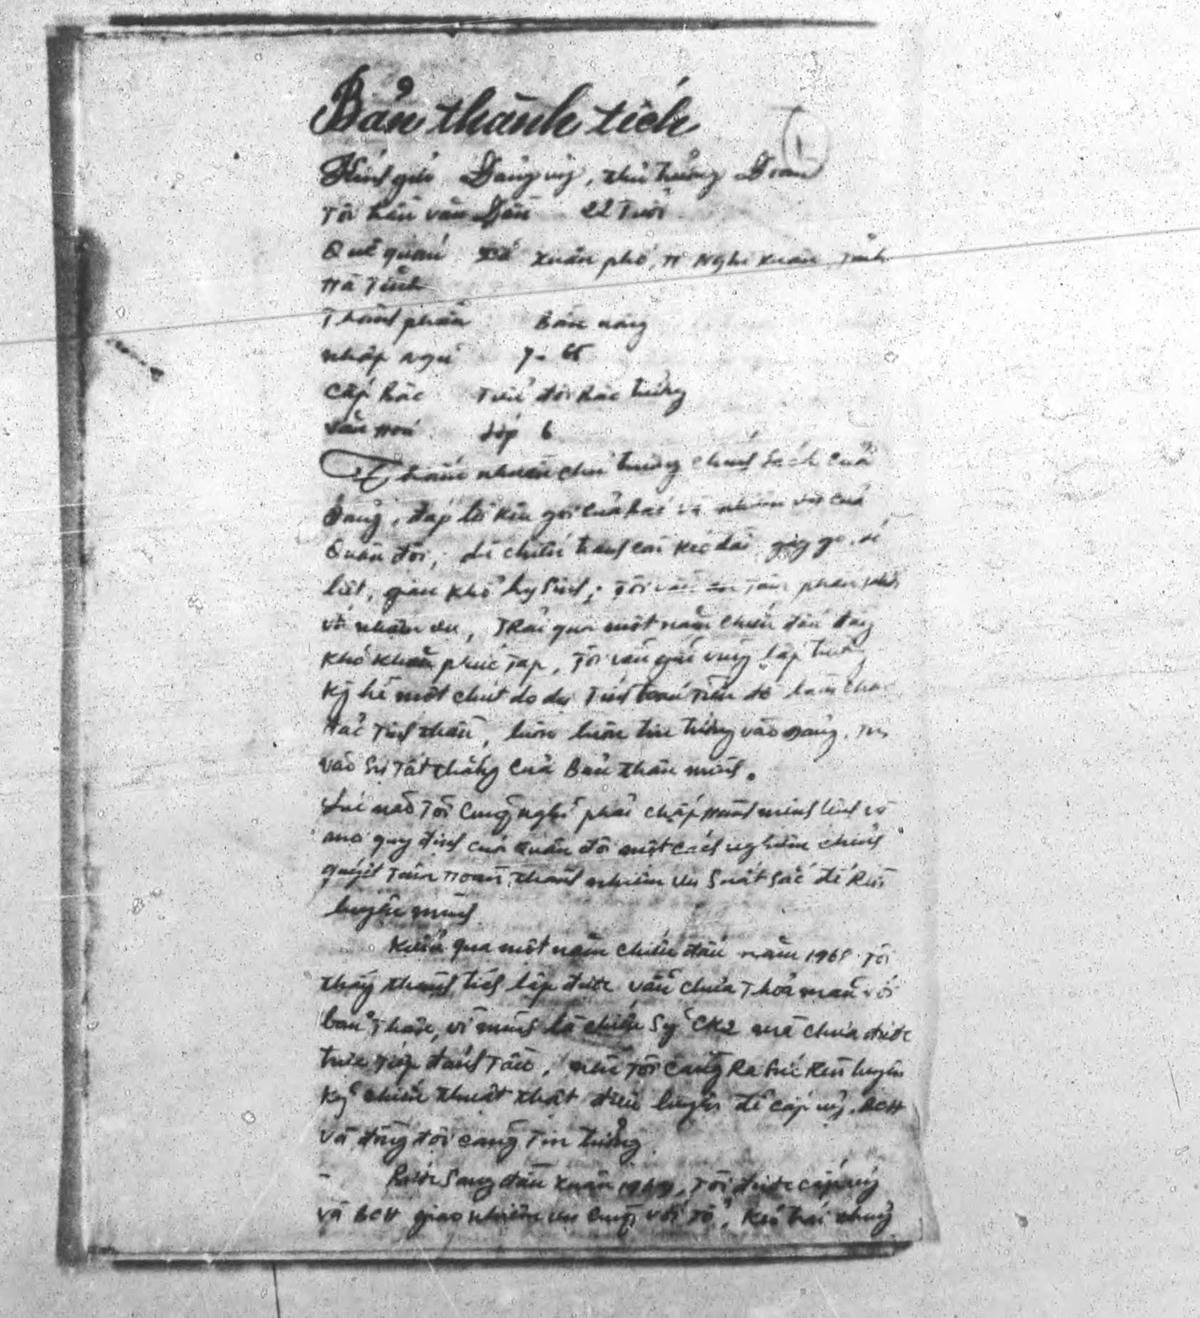 Bản thành tích
1
Kính gửi Đảng uỷ, thủ trưởng Đoàn
Tôi văn Dần 22 Tuổi
Quê quán Xã Xuân phổ, H Nghi Xuân, Tỉnh
Hà Tĩnh
Thành phần Bần nông
nhập ngũ 7- 65
Cấp bậc Tiểu đội bậc trưởng
Văn Hoá Lớp 6
Thấm nhuần chủ trương chính sách của
Đảng, đáp lời kêu gọi của bác và nhiệm vụ của
Quân đội, dù chiến tranh còn kéo dài, gay go, ác
liệt, gian khổ hy sinh, Tôi vẫn an Tâm phấn khởi
với nhiệm vụ, Trải qua một năm chiến đấu đầy
khó khăn phức Tạp, Tôi vẫn giữ vững lập trường
Kg hề một chút do dự Tính toán Tiền đồ làm cho
Tinh thần, luôn luôn tin tưởng vào Đảng, Tin
vào sự Tất thắng của Bản thân mình.
Lúc nào Tôi cũng nghĩ phải chấp Hành mệnh lệnh và
mọi quy định của Quân đội một cách nghiêm chỉnh
quyết Tâm Hoàn thành nhiệm vụ Suất Sắc để Rèn
luyện mình
qua một năm chiến đấu năm 1968 Tôi
thấy thành tích lập được vẫn chưa Thoả mãn với
bản Thân, vì mình là chiến Sỹ CK2 mà chưa được
trực Tiếp đánh Tầu, nên Tôi càng Ra Sức Rèn luyện
Kỹ chiến thuật thật điêu luyện để cấp uỷ, BCH
và đồng đội càng Tin tưởng
- Bước Sang đầu Xuân 1969, Tôi được cấp uỷ
và BCH giao nhiệm vụ cùng với Tổ,